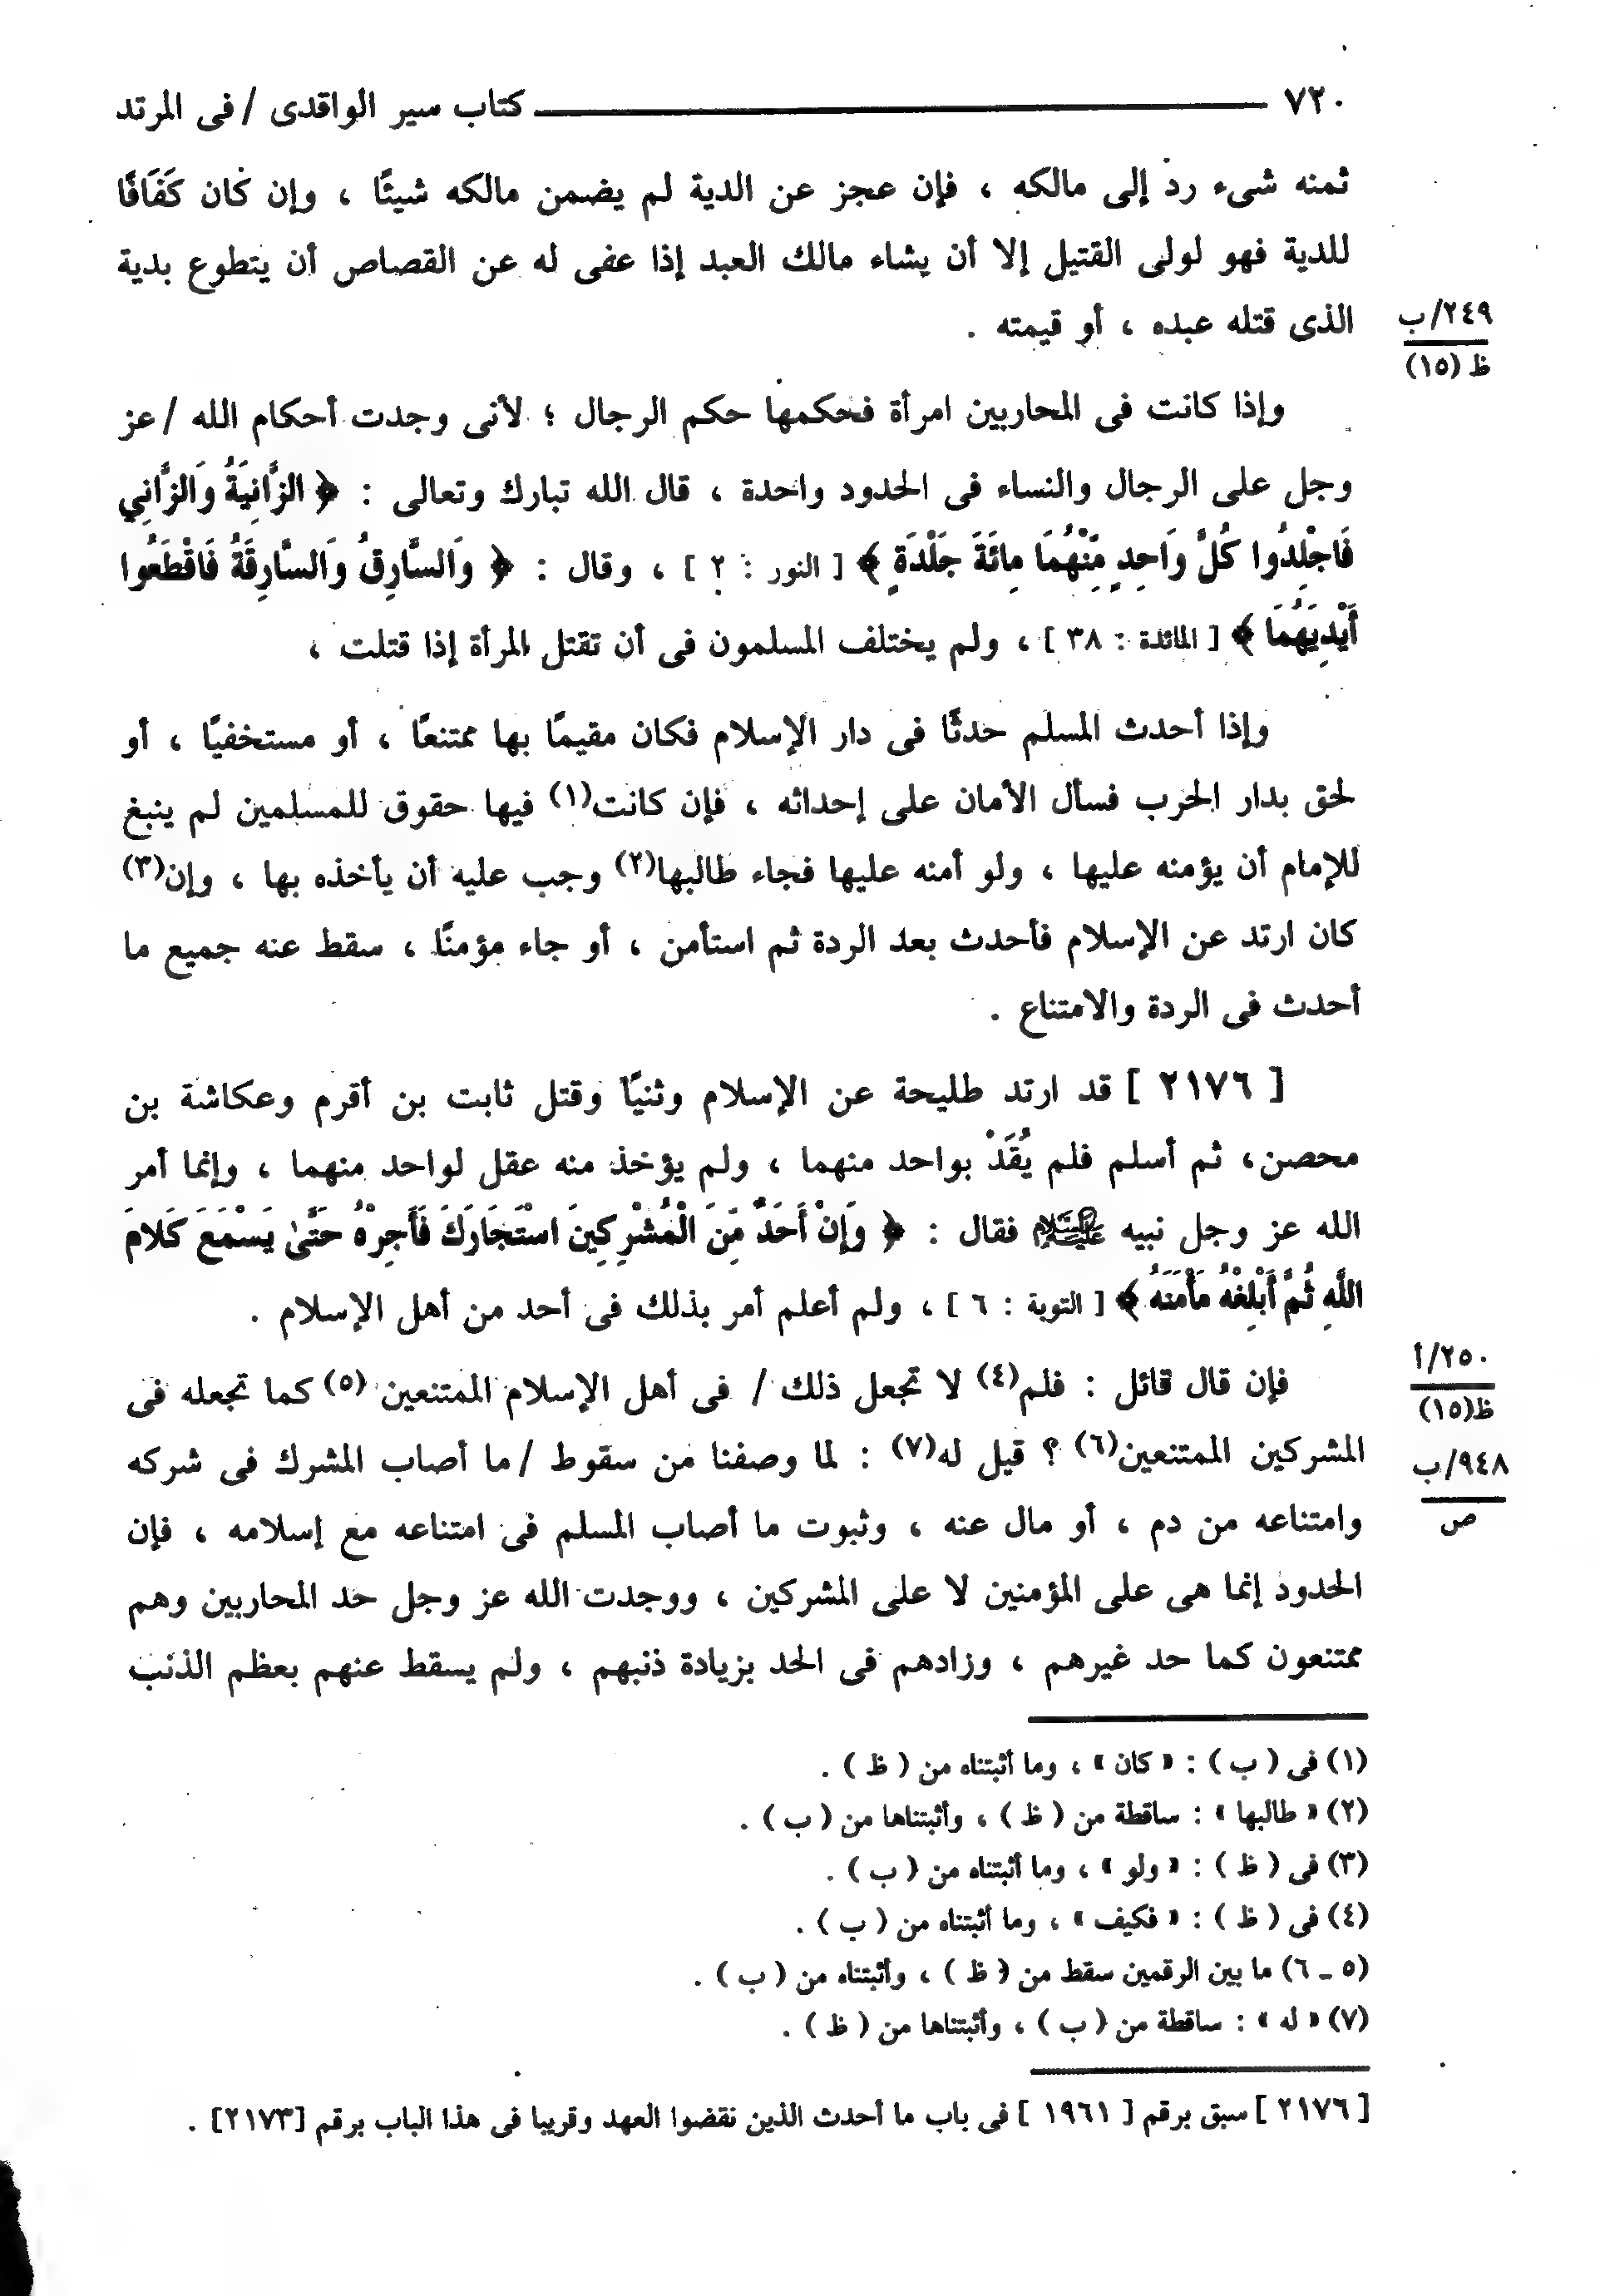 ٧٢٠ كتاب سير الواقدى / فى المرتد
ثمنه شىء رد إلى مالكه ، فإن عجز عن الدية لم يضمن مالكه شيئًا ، وإن كان كَفَافًا
للدية فهو لولى القتيل إلا أن يشاء مالك العبد إذا عفى له عن القصاص أن يتطوع بدية
الذى قتله عبده ، أو قيمته .
٢٤٩/ب
ظ (١٥)
وإذا كانت فى المحاربين امرأة فحكمها حكم الرجال ؛ لأنى وجدت أحكام الله / عز
وجل على الرجال والنساء فى الحدود واحدة ، قال الله تبارك وتعالى : ﴿ الزَّانِيَةُ وَالزَّانِي
فَاجْلِدُوا كُلَّ وَاحِدٍ مِّنْهُمَا مِائَةَ جَلْدَةٍ ﴾ [ النور : ٢ ] ، وقال : ﴿ وَالسَّارِقُ وَالسَّارِقَةُ فَاقْطَعُوا
أَيْدِيَهُمَا ﴾ [ المائدة : ٣٨ ] ، ولم يختلف المسلمون فى أن تقتل المرأة إذا قتلت ،
وإذا أحدث المسلم حدثًا فى دار الإسلام فكان مقيمًا بها ممتنعًا ، أو مستخفيًا ، أو
لحق بدار الحرب فسأل الأمان على إحداثه ، فإن كانت(١) فيها حقوق للمسلمين لم ينبغ
للإمام أن يؤمنه عليها ، ولو أمنه عليها فجاء طالبها(٢) وجب عليه أن يأخذه بها ، وإن(٣)
كان ارتد عن الإسلام فأحدث بعد الردة ثم استأمن ، أو جاء مؤمنًا ، سقط عنه جميع ما
أحدث فى الردة والامتناع .
[ ٢١٧٦ ] قد ارتد طليحة عن الإسلام وثنيًا وقتل ثابت بن أقرم وعكاشة بن
محصن، ثم أسلم فلم يُقَدْ بواحد منهما ، ولم يؤخذ منه عقل لواحد منهما ، وإنما أمر
الله عز وجل نبيه ﷺ فقال : ﴿ وَإِنْ أَحَدٌ مِّنَ الْمُشْرِكِينَ اسْتَجَارَكَ فَأَجِرْهُ حَتَّىٰ يَسْمَعَ كَلَامَ
اللَّهِ ثُمَّ أَبْلِغْهُ مَأْمَنَهُ ﴾ [ التوبة : ٦ ] ، ولم أعلم أمر بذلك فى أحد من أهل الإسلام .
٢٥٠/أ
ظ(١٥)
فإن قال قائل : فلم(٤) لا تجعل ذلك / فى أهل الإسلام الممتنعين (٥) كما تجعله فى
المشركين الممتنعين(٦) ؟ قيل له(٧) : لما وصفنا من سقوط / ما أصاب المشرك فى شركه
٩٤٨/ب
ص
وامتناعه من دم ، أو مال عنه ، وثبوت ما أصاب المسلم فى امتناعه مع إسلامه ، فإن
الحدود إنما هى على المؤمنين لا على المشركين ، ووجدت الله عز وجل حد المحاربين وهم
ممتنعون كما حد غيرهم ، وزادهم فى الحد بزيادة ذنبهم ، ولم يسقط عنهم بعظم الذنب
(١) فى ( ب ) : « كان » ، وما أثبتناه من ( ظ ) .
(٢) « طالبها » : ساقطة من ( ظ ) ، وأثبتناها من ( ب ) .
(٣) فى ( ظ ) : « ولو » ، وما أثبتناه من ( ب ) .
(٤) فى ( ظ ) : « فكيف » ، وما أثبتناه من ( ب ) .
(٥ ـ ٦) ما بين الرقمين سقط من ( ظ ) ، وأثبتناه من ( ب ) .
(٧) « له » : ساقطة من ( ب ) ، وأثبتناها من ( ظ ) .
[ ٢١٧٦ ] سبق برقم [ ١٩٦١ ] فى باب ما أحدث الذين نقضوا العهد وقريبا فى هذا الباب برقم [٢١٧٣] .